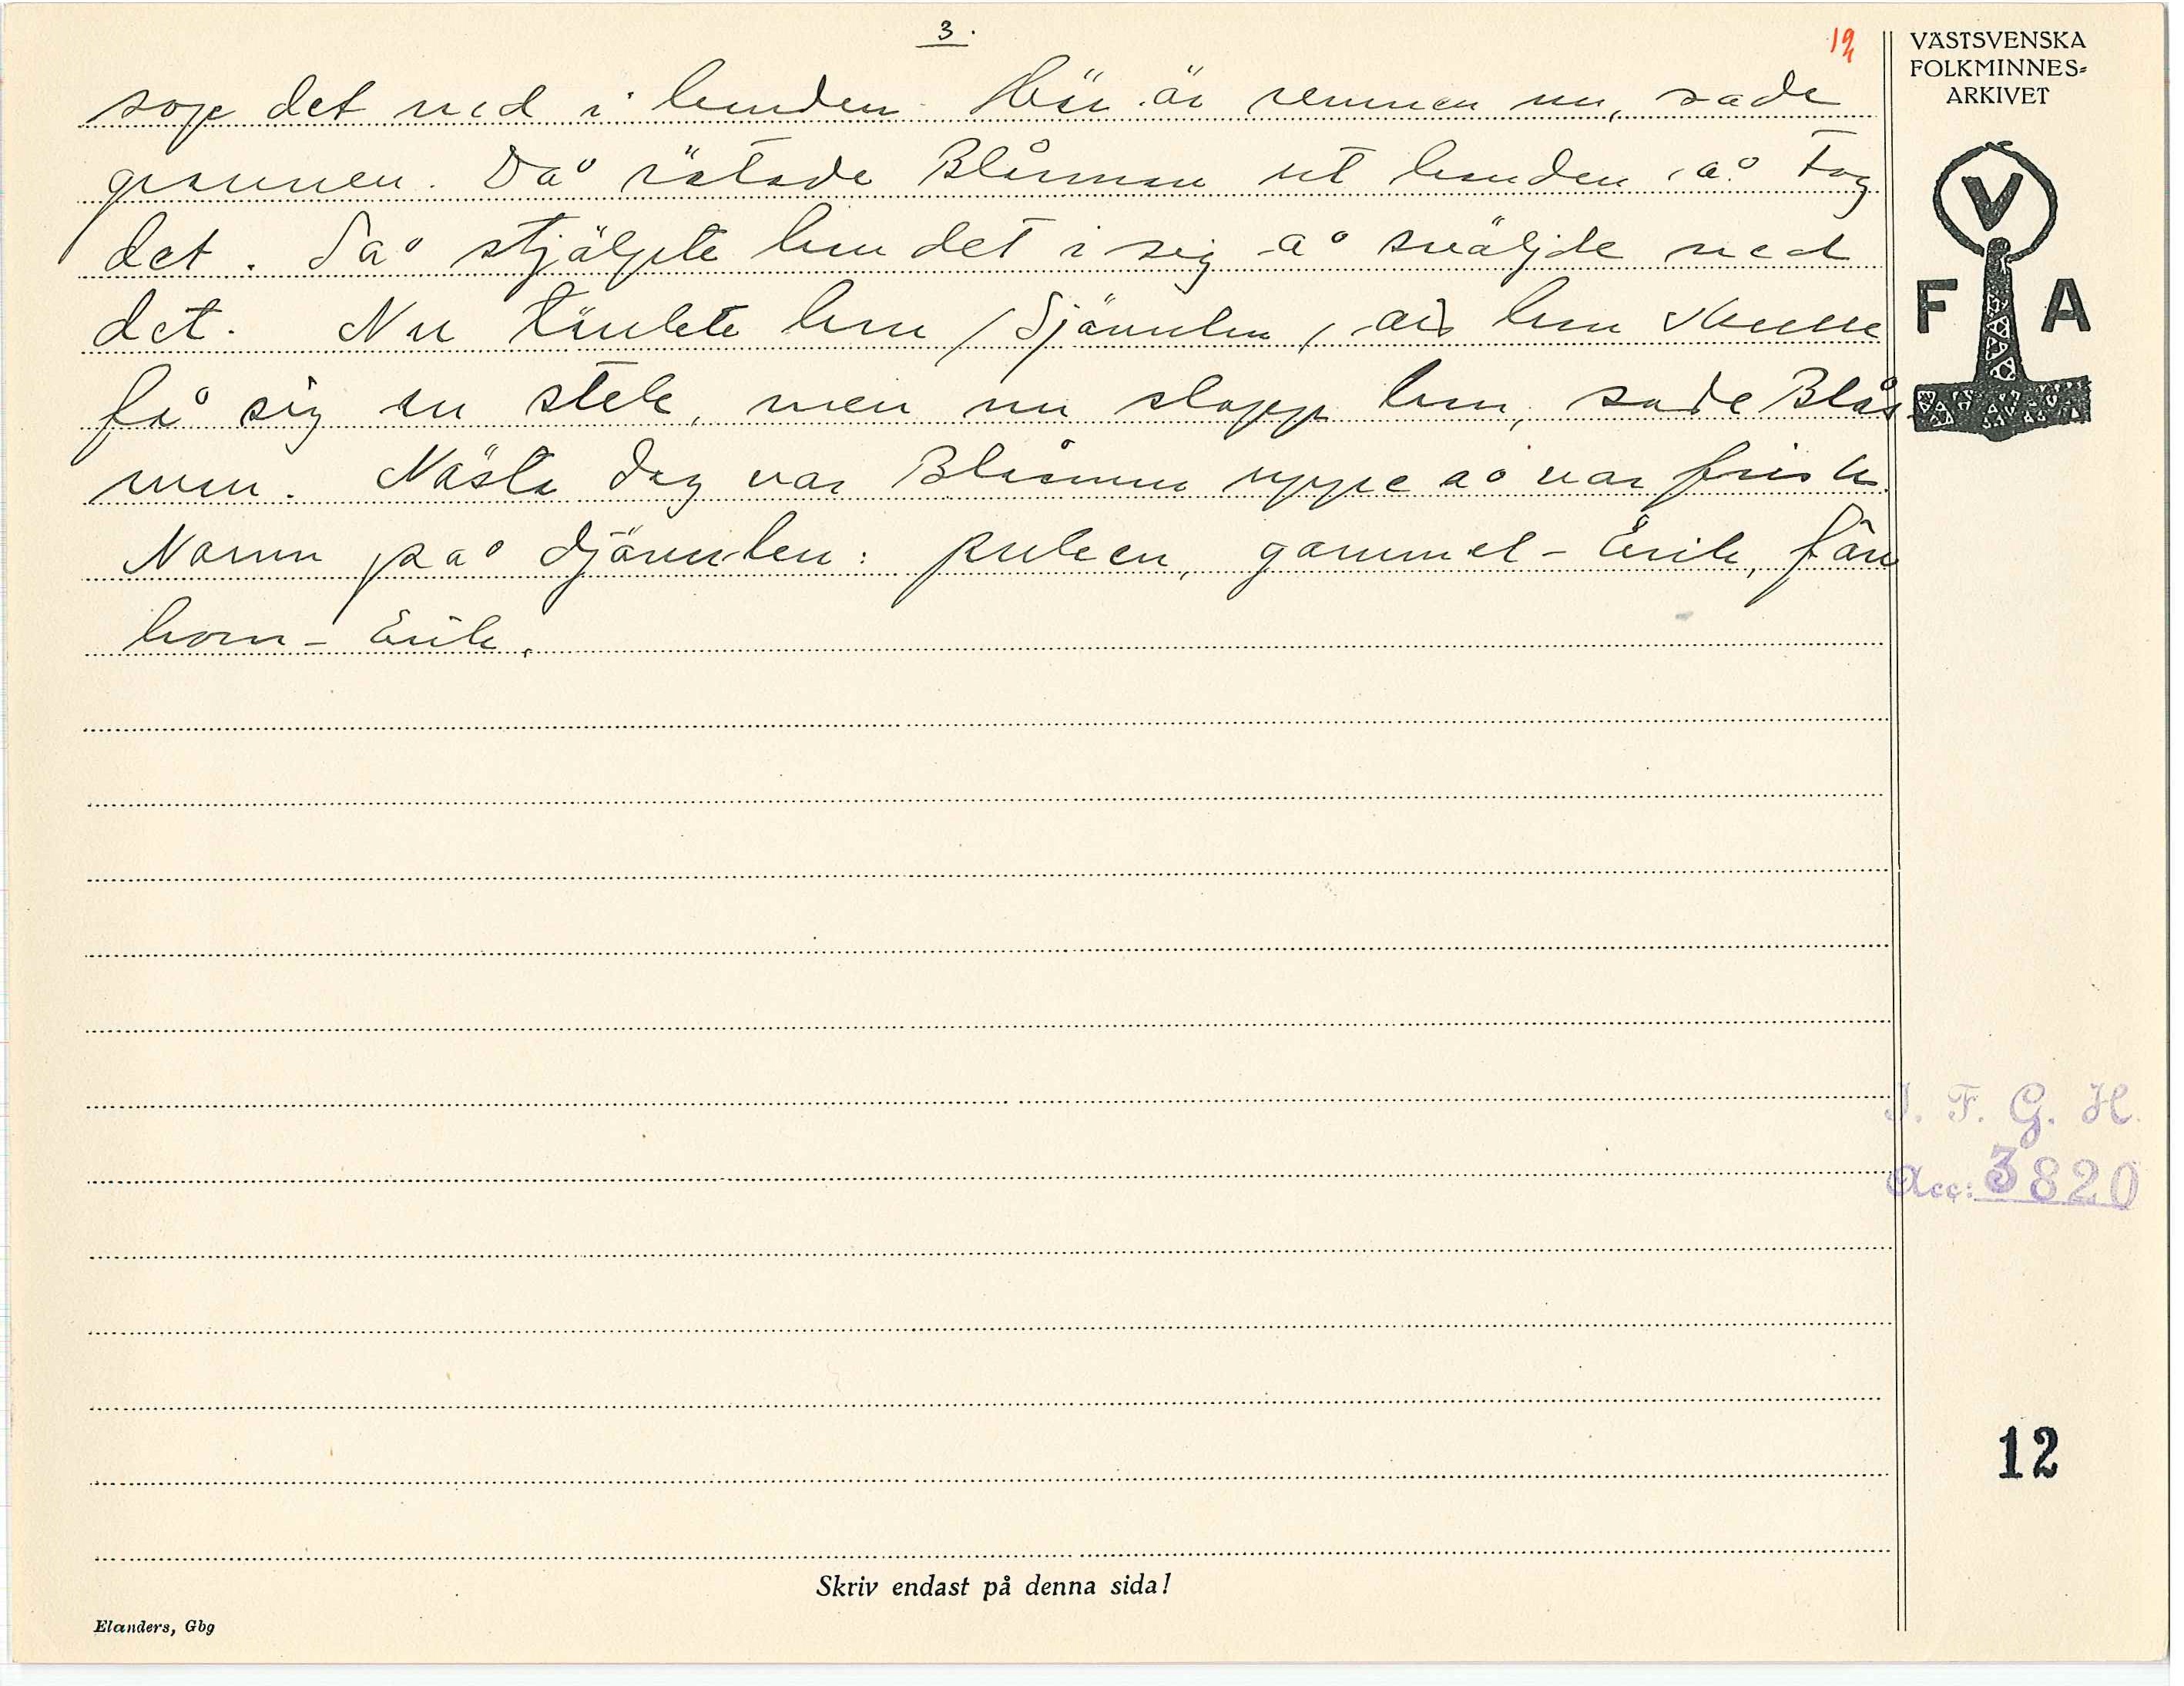 3.
19
VÄSTSVENSKA
FOLKMINNES-
ARKIVET
det ned i handen. Här är remmen nu, sade
grannen. Då rätade Blåman ut handen å tog
det. Så stjälpte han det i sig å sväljde ned
det. Nu tänkte han, djävulen, att han skulle
få sig en stek, men nu slapp han, sade Blå-
man. Nästa dag var Blåman uppe å var frisk.
Namn på djävulen: puken, gammel-Erik, fän
horn-Erik.
V
F A
I. F. G. H.
Acc: 3820
12
Skriv endast på denna sida!
Elanders, Gbg